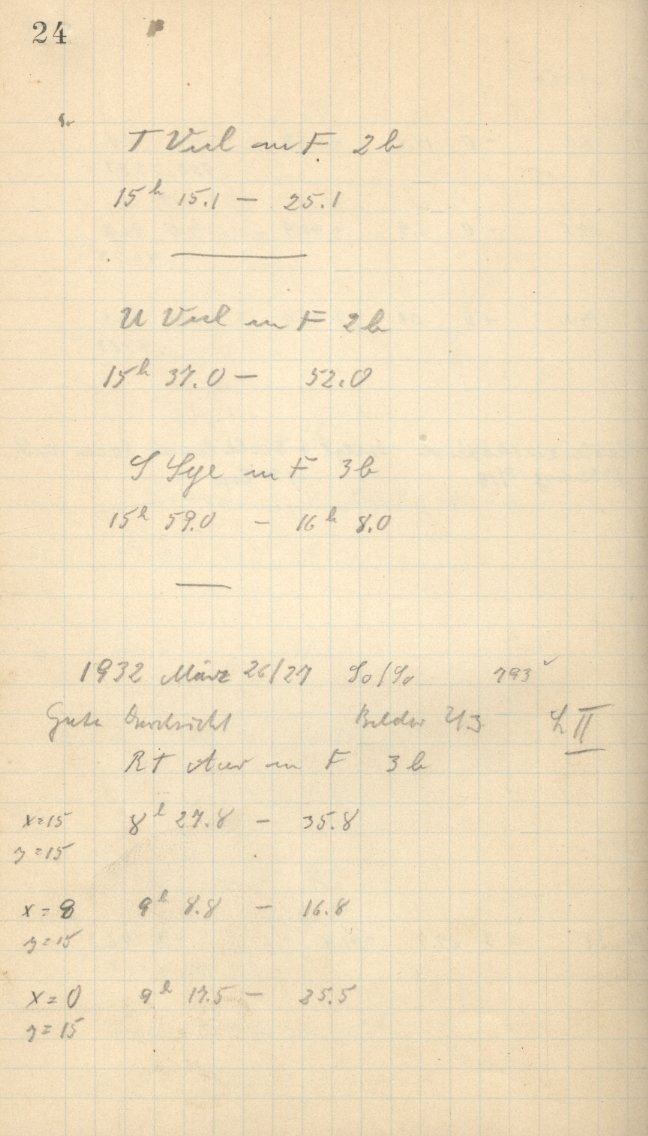 24
T Vul in F 2b
15h 15.1 — 25.1
U Vul in F 2b
15h 37.0 — 52.0
S Sge in F 3b
15h 59.0 — 16h 8.0
1932 März 26/27 So/So 793
Gute Durchsicht Bilder 2/3 L II
RT Aur in F 3b
x=15 8h 27.8 — 35.8
y=15
x=8 9h 8.8 — 16.8
y=15
x=0 9h 17.5 — 25.5
y=15